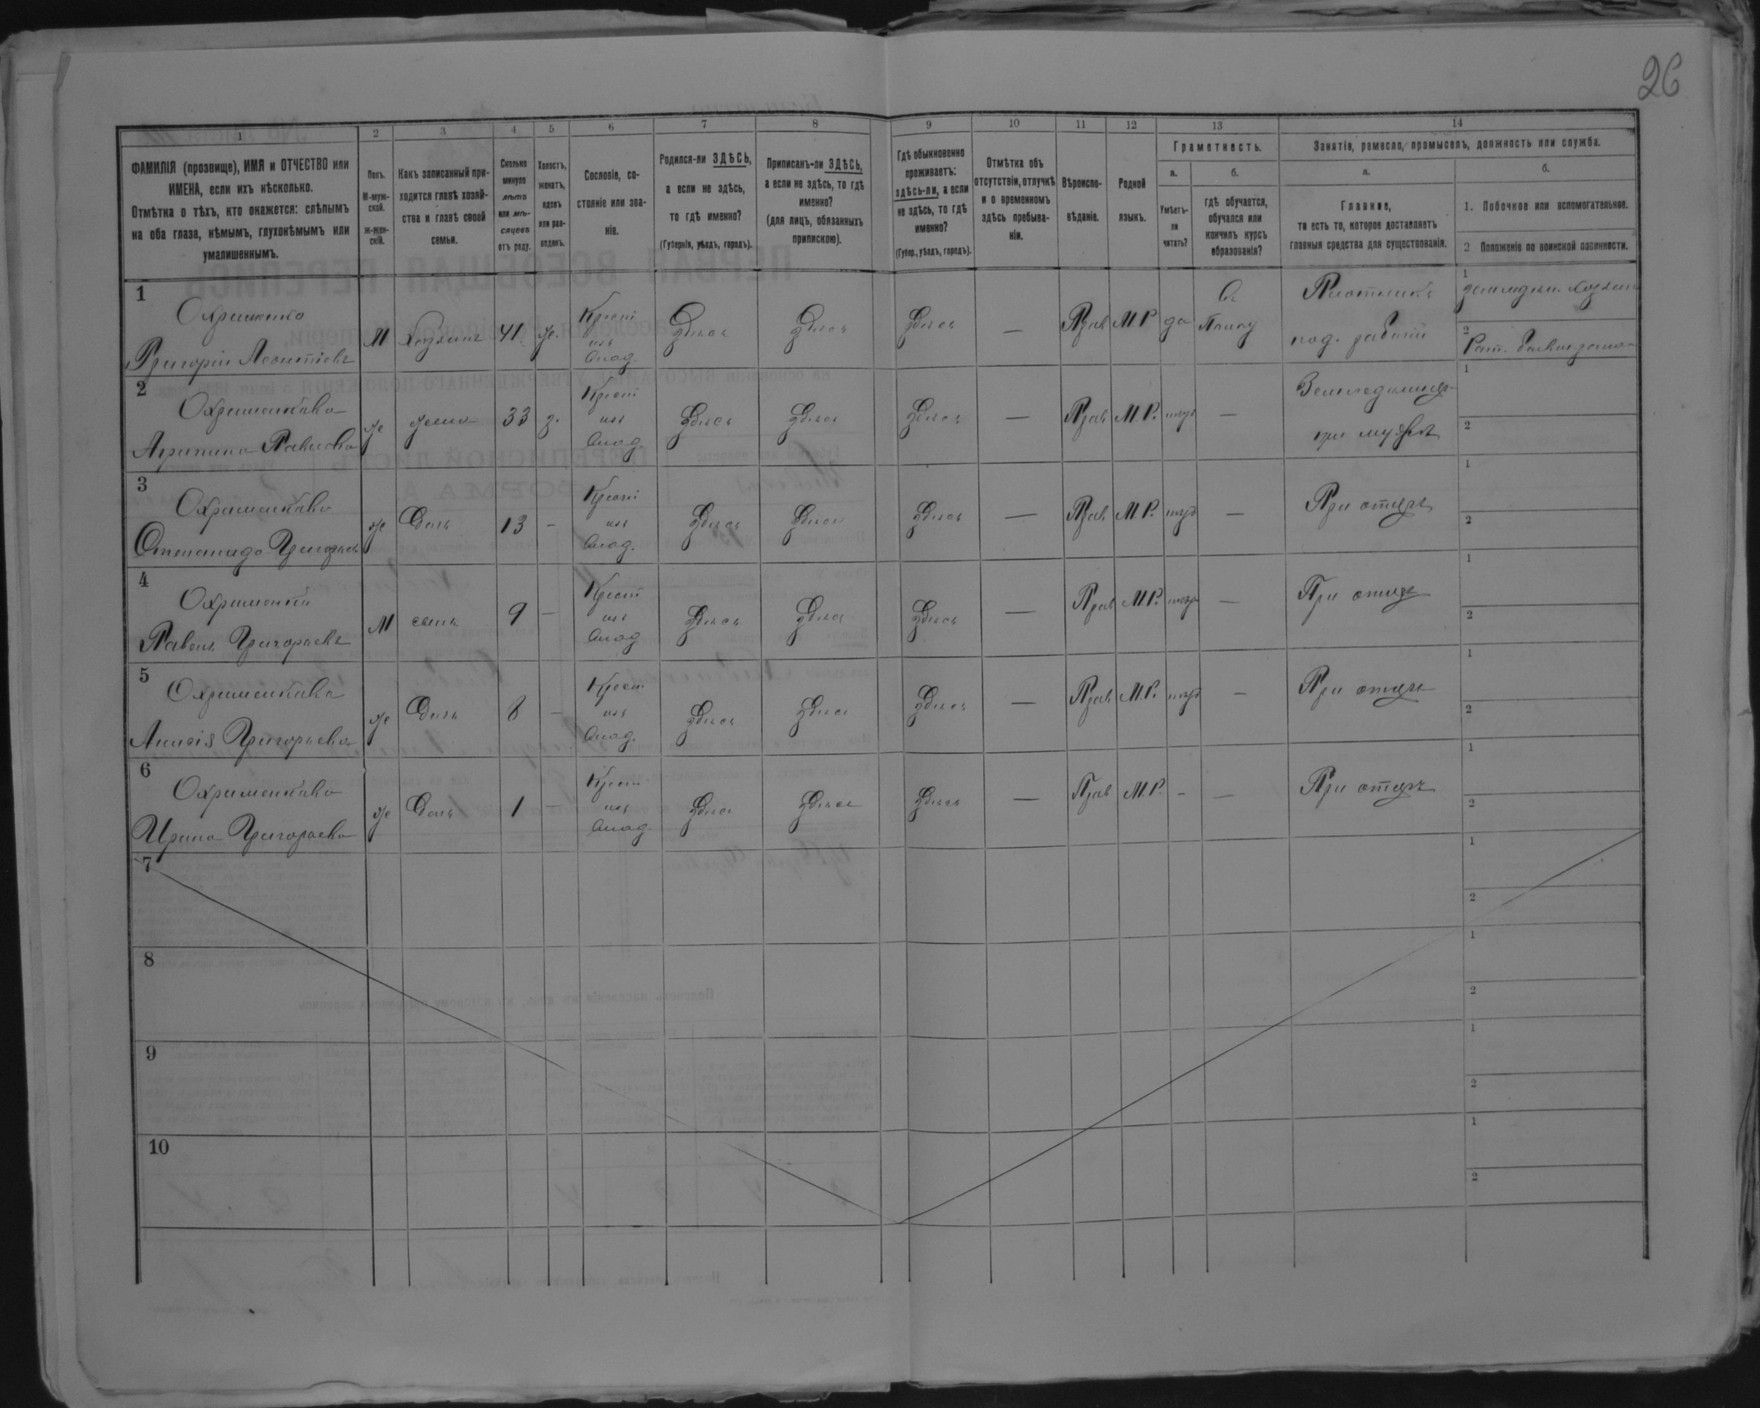 26
1 2 3 4 5 6 7 8 9 10 11 12 13 14
ФАМИЛІЯ (прозвище), ИМЯ и ОТЧЕСТВО или
ИМЕНА, если ихъ нѣсколько.
Отмѣтка о тѣхъ, кто окажется: слѣпымъ
на оба глаза, нѣмымъ, глухонѣмымъ или
умалишеннымъ.
Полъ.
М-мужской.
ж-женскій.
Какъ записанный приходится
главѣ хозяйства
и главѣ своей
семьи.
Сколько
минуло
лѣтъ
или мѣсяцевъ
отъ роду.
Холостъ,
женатъ,
вдовъ
или разведенъ.
Сословіе, состояніе
или званіе.
Родился-ли ЗДѢСЬ,
а если не здѣсь,
то гдѣ именно?
(Губернія, уѣздъ, городъ).
Приписанъ-ли ЗДѢСЬ,
а если не здѣсь, то гдѣ
именно?
(для лицъ, обязанныхъ
припискою).
Гдѣ обыкновенно
проживаетъ:
здѣсь-ли, а если
не здѣсь, то гдѣ
именно?
(Губер., уѣздъ, городъ).
Отмѣтка объ
отсутствіи, отлучкѣ
и о временномъ
здѣсь пребываніи.
Вѣроисповѣданіе.
Родной
языкъ.
Грамотность.
а.
Умѣетъ-ли
читать?
б.
гдѣ обучается,
обучался или
кончилъ курсъ
образованія?
Занятіе, ремесло, промыселъ, должность или служба.
а.
Главное,
то есть то, которое доставляетъ
главныя средства для существованія.
б.
1. Побочное или вспомогательное.
2 Положеніе по воинской повинности.
1
Охрименко
Григорій Леонтіевъ
М Хозяинъ 41. ж. Крест изъ влад. Здѣсь Здѣсь Здѣсь — Прав М.Р да
Плотникъ
под. рабочій
2
Охрименкова
Агрипина Павлова
ж жена 33 з. Крест изъ влад. Здѣсь Здѣсь Здѣсь — Прав М.Р. нетъ —
при мужѣ
3
Охрименкова
Степанида Григорьев
ж Дочь 13 - Крест изъ влад. Здѣсь Здѣсь Здѣсь — Прав. М.Р. нетъ — При отцѣ
4
Охрименко
Павелъ Григорьевъ
М сынъ 9 - Крест изъ влад Здѣсь Здѣсь Здѣсь — Прав М.Р. нетъ — При отцѣ
5
Охрименкова
Григорьева
ж Дочь 8 - Крест изъ влад. Здѣсь Здѣсь Здѣсь — Прав М.Р. нетъ — При отцѣ
6
Охрименкова
Ирина Григорьева
ж Дочь 1 — Крест изъ влад. Здѣсь Здѣсь Здѣсь — Прав М.Р. - — При отцѣ
7
8
9
10